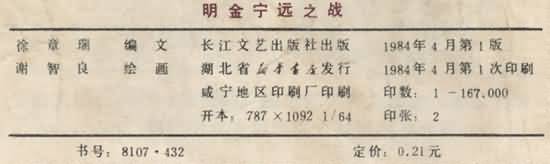 明金宁远之战
徐章瑞 编文 长江文艺出版社出版 1984年4月第1版
谢智良 绘画 湖北省新华书店发行 1984年4月第1次印刷
咸宁地区印刷厂印刷 印数：1－167.000
开本：787×1092 1/64 印张：2
书号：8107·432 定价：0.21元